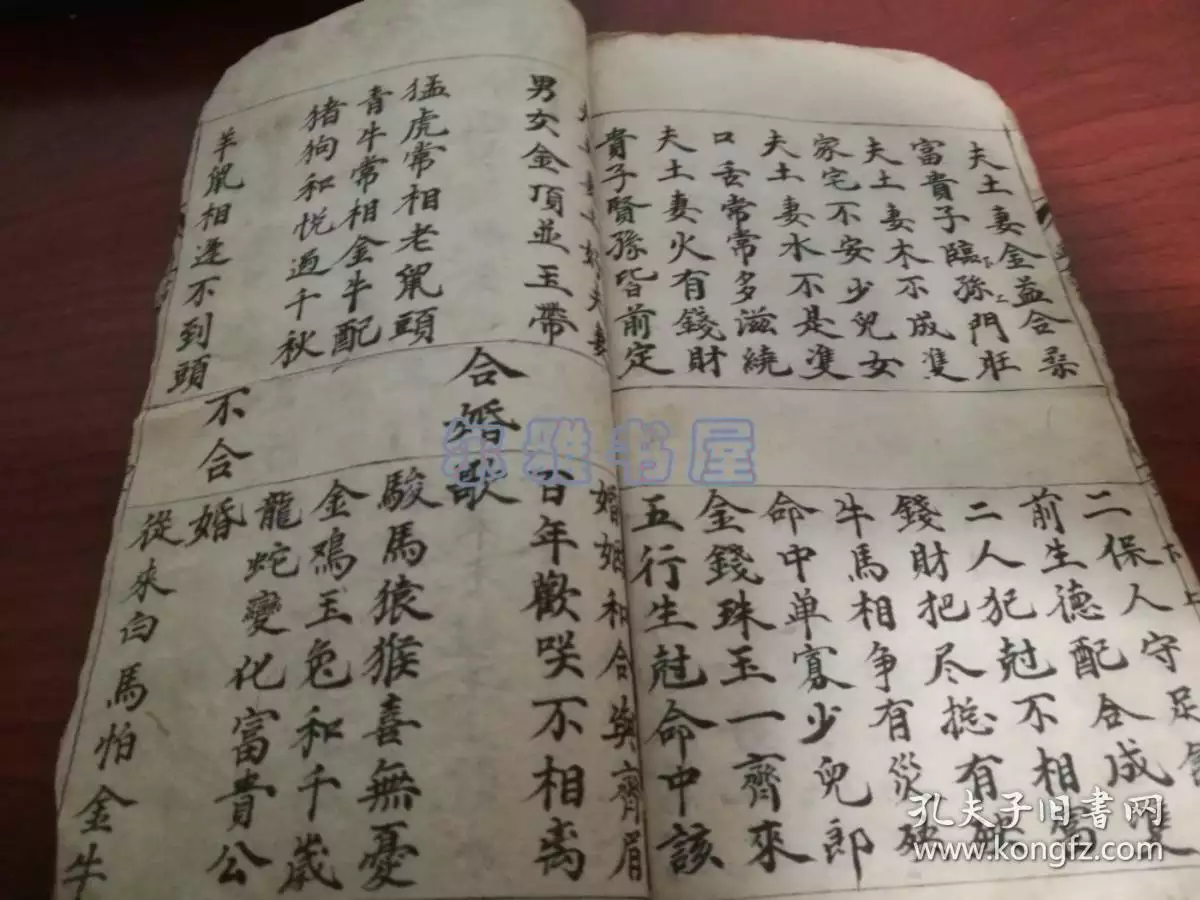 夫土妻金益合柔
富貴子臨孫門旺
夫土妻木不成隻
家宅不安少兒女
夫土妻水不是隻
口舌常常多滋繞
夫土妻火有錢財
貴子賢孫皆前定
二保人守足
前生德配合成隻
二人犯尅不相
錢財把尽捴有
牛馬相争有災
命中单寡少兒郎
金錢珠玉一齊來
五行生尅命中該
夫妻
男女金頂並玉帶
婚姻和合與齊眉
百年歡咲不相离
合婚歌
猛虎常相老鼠頭
青牛常相金牛配
猪狗和悦過千秋
駿馬猿猴喜無憂
金鳮玉兔和千歲
龍蛇變化富貴公
不合婚
羊鼠相逢不到頭
從來白馬怕金牛
雅书屋
孔夫子旧書网
www.kongfz.com